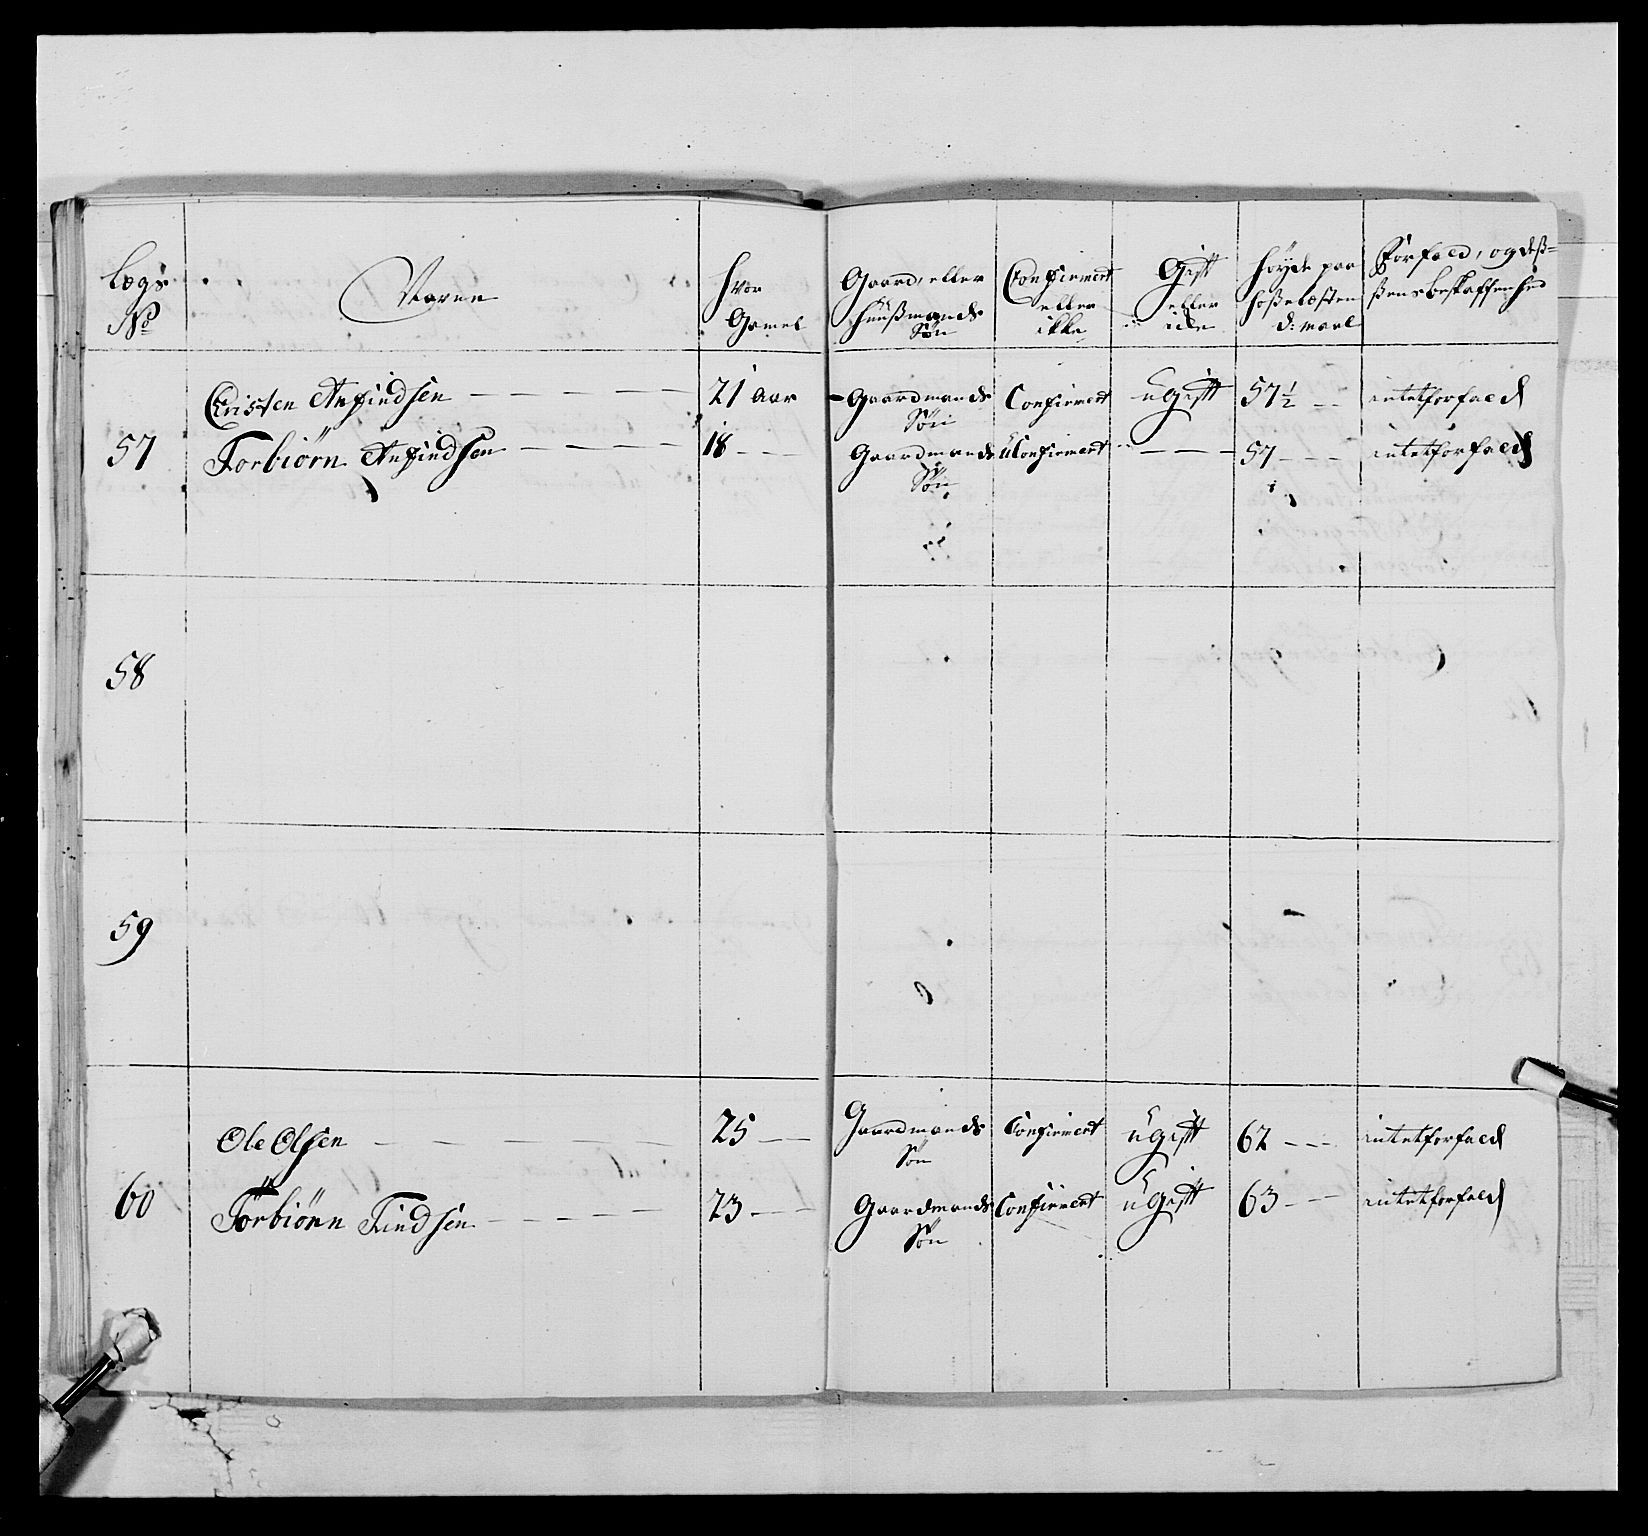 Lægs No
Navne
hvor Gamel
Gaard, eller huusmands Søn
Confirmert eller ikke
Gift eller icke
høyde paa hoßelæsten d: maal
Forfald, og deß= ßens beskaffenhed
57
Cristen Anfindsen — — — — 21 aar Gaardmands Søn Confirmert ugift 57½ — intetforfald
Torbiörn Anfindsen — — — — 18 — — Gaardmands Søn uConfirmert — — — 57 — — intetforfald
58
59
60
Ole Olsen — — — — — 25 — — Gaardmands Søn Confirmert ugift 62 — — intetforfald
Torbiörn Findsen — — — — 23 — — Gaardmands Søn Confirmert ugift 63 — — intetforfald